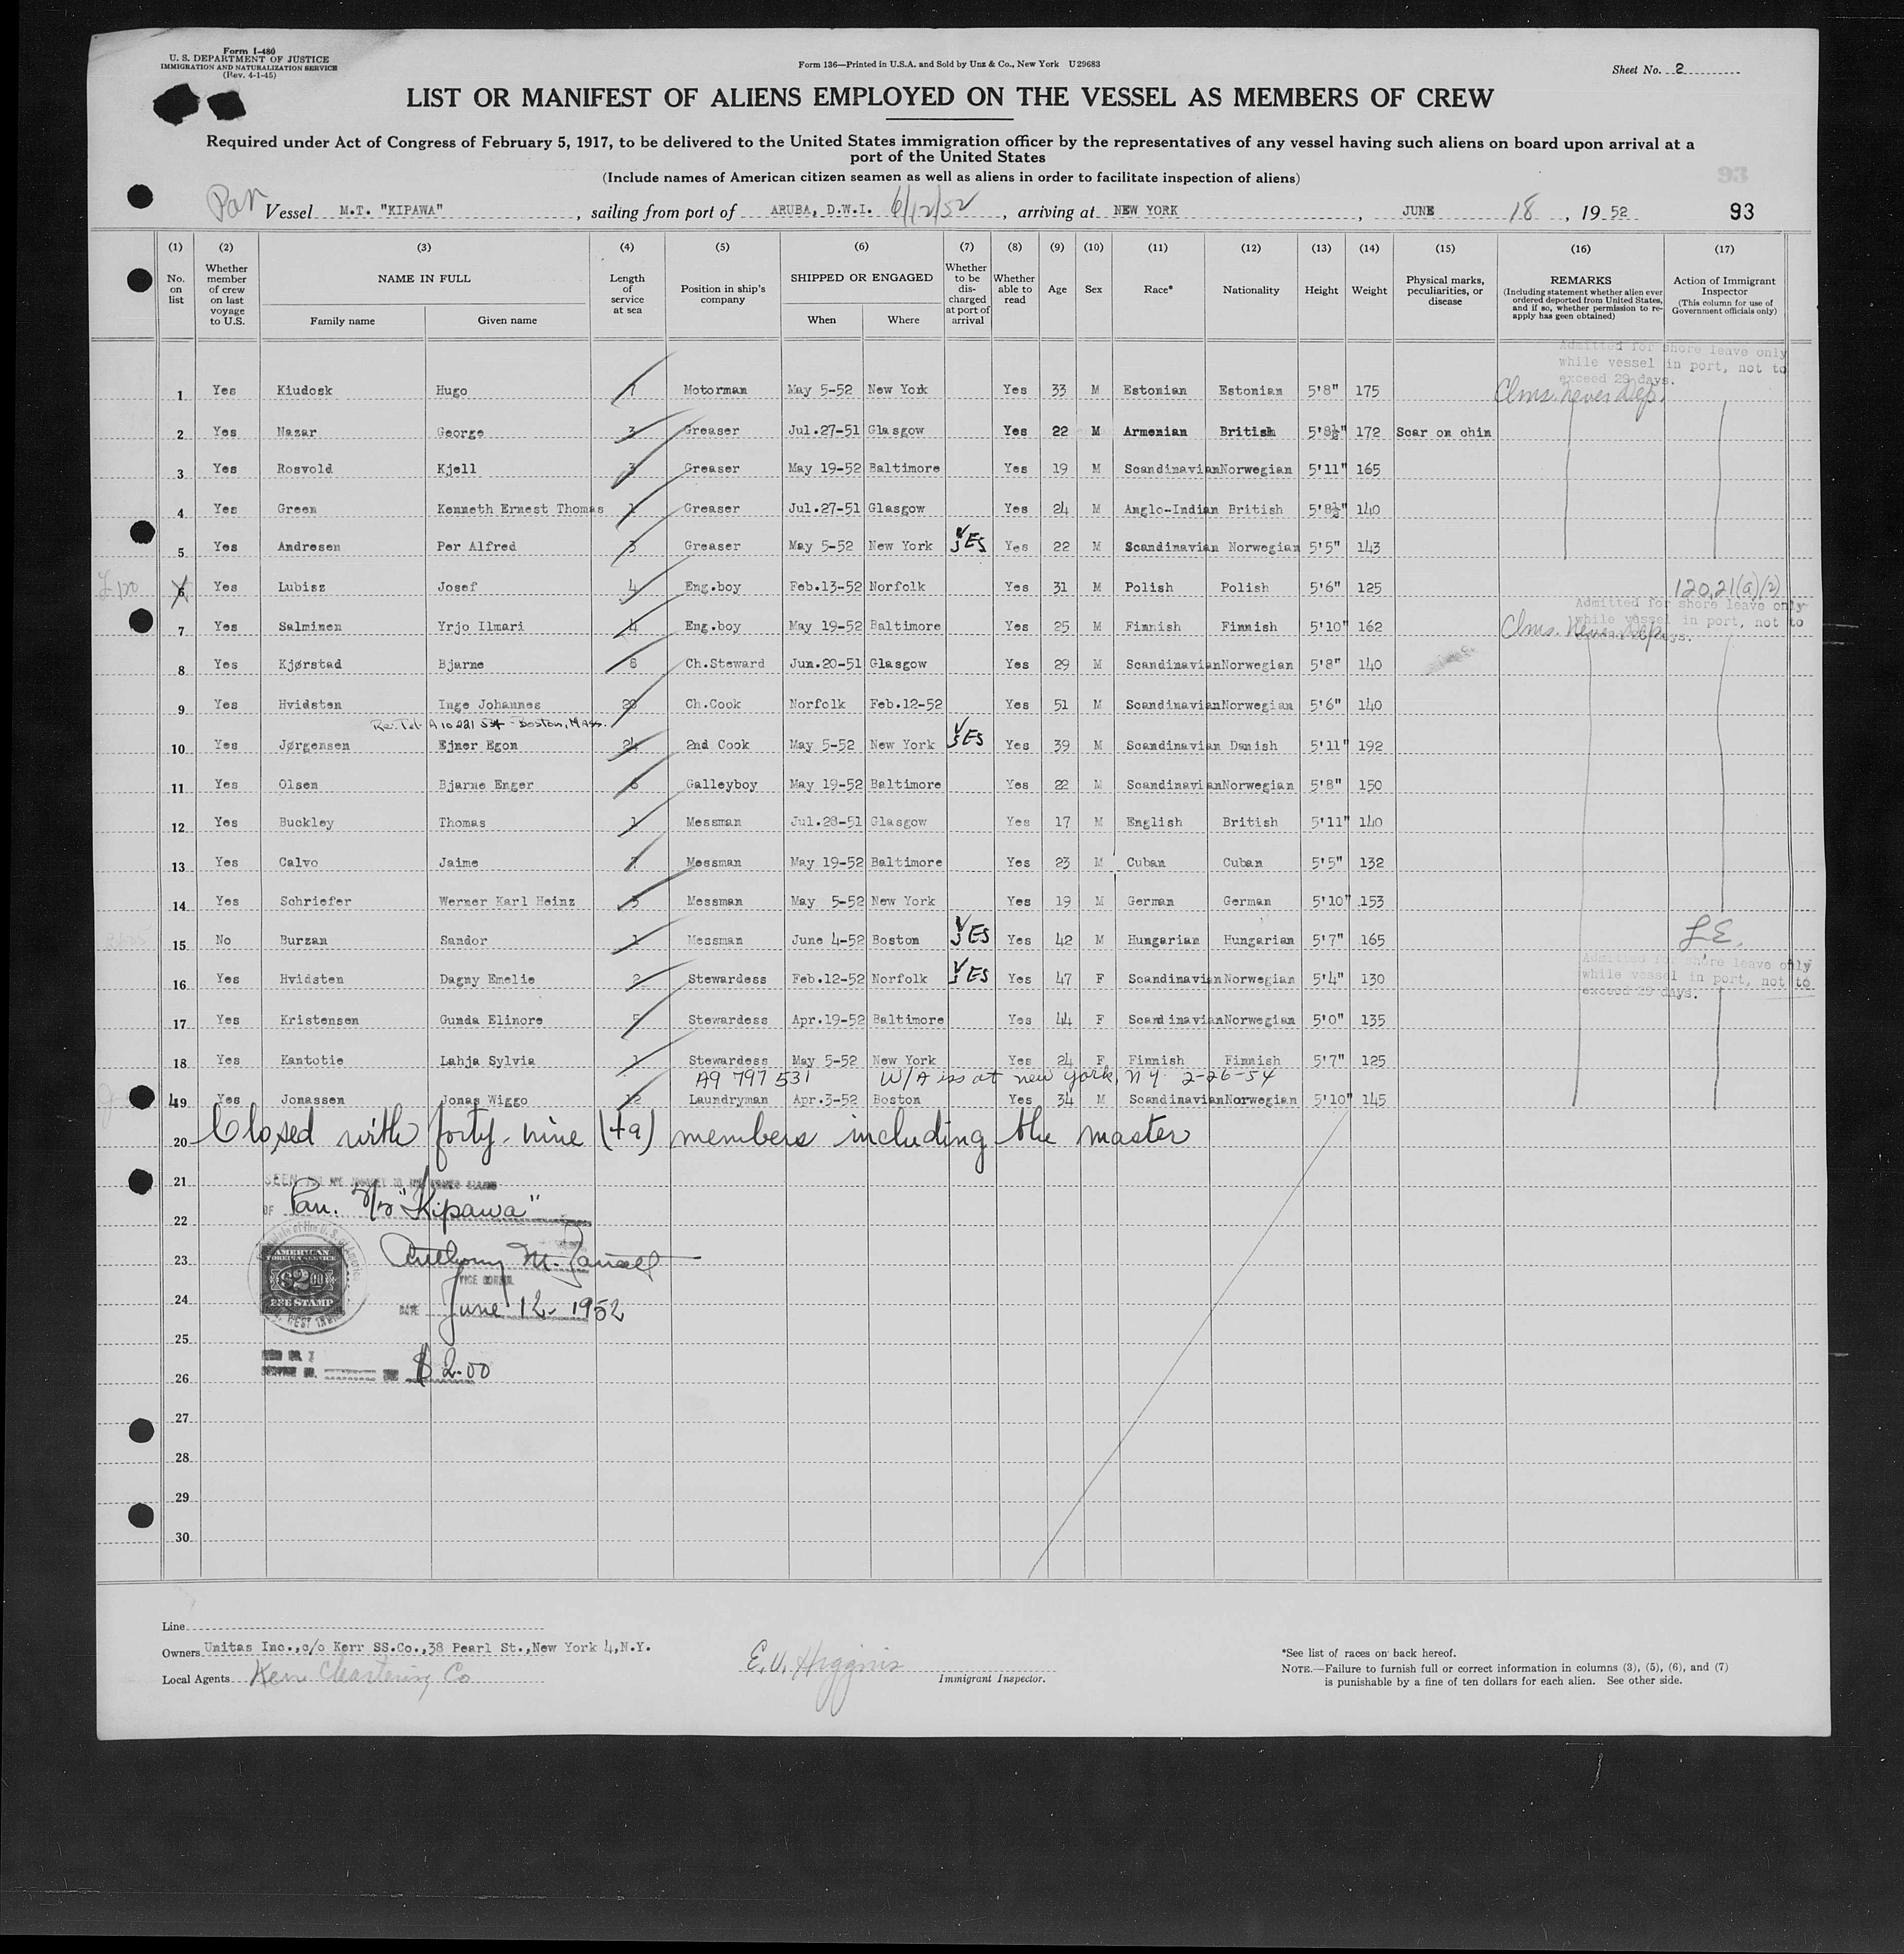 Form I-480
U. S. DEPARTMENT OF JUSTICE
IMMIGRATION AND NATURALIZATION SERVICE
(Rev. 4-1-45)
Form 136—Printed in U.S.A. and Sold by Unz & Co., New York U29683
Sheet No. 2
LIST OR MANIFEST OF ALIENS EMPLOYED ON THE VESSEL AS MEMBERS OF CREW
Required under Act of Congress of February 5, 1917, to be delivered to the United States immigration officer by the representatives of any vessel having such aliens on board upon arrival at a
port of the United States
(Include names of American citizen seamen as well as aliens in order to facilitate inspection of aliens)
93
Pan Vessel M.T. "KIPAWA", sailing from port of ARUBA, D.W.I. 6/12/52, arriving at NEW YORK, JUNE 18, 19 52 93
(1) (2) (3) (4) (5) (6) (7) (8) (9) (10) (11) (12) (13) (14) (15) (16) (17)
No. on list
Whether member of crew on last voyage to U.S.
NAME IN FULL
Family name
Given name
Length of service at sea
Position in ship's company
SHIPPED OR ENGAGED
When
Where
Whether to be discharged at port of arrival
Whether able to read
Age
Sex
Race*
Nationality
Height
Weight
Physical marks, peculiarities, or disease
REMARKS
(Including statement whether alien ever ordered deported from United States, and if so, whether permission to re-apply has geen obtained)
Action of Immigrant Inspector
(This column for use of Government officials only)
Admitted for shore leave only
while vessel in port, not to
exceed 29 days.
1 Yes Kiudosk Hugo 7 Motorman May 5-52 New York Yes 33 M Estonian Estonian 5'8" 175 Clms. never Dep.
2 Yes Nazar George 3 Greaser Jul.27-51 Glasgow Yes 22 M Armenian British 5'8½" 172 Scar on chin
3 Yes Rosvold Kjell 3 Greaser May 19-52 Baltimore Yes 19 M Scandinavian Norwegian 5'11" 165
4 Yes Green Kenneth Ernest Thomas 1 Greaser Jul.27-51 Glasgow Yes 24 M Anglo-Indian British 5'8½" 140
5 Yes Andresen Per Alfred 3 Greaser May 5-52 New York YES Yes 22 M Scandinavian Norwegian 5'5" 143
6 Yes Lubisz Josef 4 Eng.boy Feb.13-52 Norfolk Yes 31 M Polish Polish 5'6" 125 120.21(a)(2)
Admitted for shore leave only
while vessel in port, not to
7 Yes Salminen Yrjo Ilmari 4 Eng.boy May 19-52 Baltimore Yes 25 M Finnish Finnish 5'10" 162 Clms. never Dep.
8 Yes Kjørstad Bjarne 8 Ch.Steward Jun.20-51 Glasgow Yes 29 M Scandinavian Norwegian 5'8" 140
9 Yes Hvidsten Inge Johannes 20 Ch.Cook Norfolk Feb.12-52 Yes 51 M Scandinavian Norwegian 5'6" 140
Re: Tel. A 10 221 534 - Boston, Mass.
10 Yes Jørgensen Ejner Egon 24 2nd Cook May 5-52 New York YES Yes 39 M Scandinavian Danish 5'11" 192
11 Yes Olsen Bjarne Enger 6 Galleyboy May 19-52 Baltimore Yes 22 M Scandinavian Norwegian 5'8" 150
12 Yes Buckley Thomas 1 Messman Jul.28-51 Glasgow Yes 17 M English British 5'11" 140
13 Yes Calvo Jaime 7 Messman May 19-52 Baltimore Yes 23 M Cuban Cuban 5'5" 132
14 Yes Schriefer Werner Karl Heinz 3 Messman May 5-52 New York Yes 19 M German German 5'10" 153
15 No Burzan Sandor 1 Messman June 4-52 Boston YES Yes 42 M Hungarian Hungarian 5'7" 165 L.E.
Admitted for shore leave only
while vessel in port, not to
exceed 29 days.
16 Yes Hvidsten Dagny Emelie 2 Stewardess Feb.12-52 Norfolk YES Yes 47 F Scandinavian Norwegian 5'4" 130
17 Yes Kristensen Gunda Elinore 5 Stewardess Apr.19-52 Baltimore Yes 44 F Scandinavian Norwegian 5'0" 135
18 Yes Kantotie Lahja Sylvia 1 Stewardess May 5-52 New York Yes 24 F Finnish Finnish 5'7" 125
A9 797 531 W/A iss at new york, NY 2-26-54
49 Yes Jonassen Jonas Wiggo 12 Laundryman Apr.3-52 Boston Yes 34 M Scandinavian Norwegian 5'10" 145
20 Closed with forty-nine (49) members including the master
21 SEEN
22 OF Pan. M/V "Kipawa"
AMERICAN
FOREIGN SERVICE
$2.00
FEE STAMP
23 Anthony M.
VICE CONSUL
24 DATE June 12 - 1952
25
26 SERVICE NO. $2.00
27
28
29
30
Line
Owners Unitas Inc.,c/o Kerr SS.Co.,38 Pearl St.,New York 4,N.Y.
Local Agents Kerr Chartering Co
E.V. Higgins
Immigrant Inspector.
*See list of races on back hereof.
NOTE.—Failure to furnish full or correct information in columns (3), (5), (6), and (7)
is punishable by a fine of ten dollars for each alien. See other side.